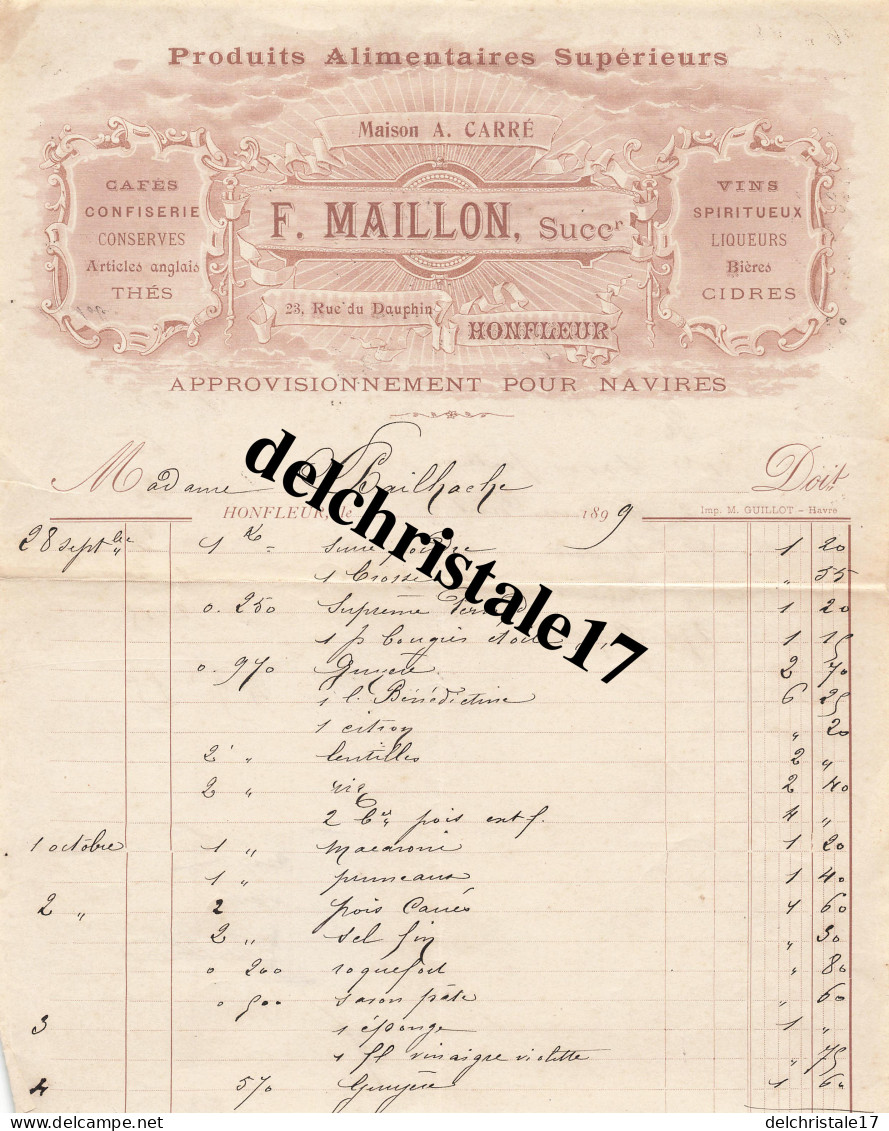 Produits Alimentaires Supérieurs
Maison A. CARRÉ
F. MAILLON, Succr
CAFÉS
CONFISERIE
CONSERVES
Articles anglais
THÉS
VINS
SPIRITUEUX
LIQUEURS
Bières
CIDRES
23, Rue du Dauphin
HONFLEUR
APPROVISIONNEMENT POUR NAVIRES
Madame Doit
HONFLEUR, le 1899
Imp. M. GUILLOT - Havre
delchristale17
28 septbre 1 K 1 20
1 Crosse " 55
0. 250 Suprême 1 20
1 p bougies 1 15
0. 970 2 70
1 l. Bénédictine 6 25
1 citron " 20
2 " lentilles 2 "
2 " riz 2 40
2 bes pois ext f. 4 "
1 octobre 1 " macaroni 1 20
1 " pruneaux 1 40
2 " 2 pois Carrés 4 60
2 " sel fin " 30
0 200 roquefort " 80
0 500 savon pâte " 60
3 1 éponge 1 "
1 fl vinaigre violette " 75
4 570 Gruyère 1 60
delchristale17
delcampe.net